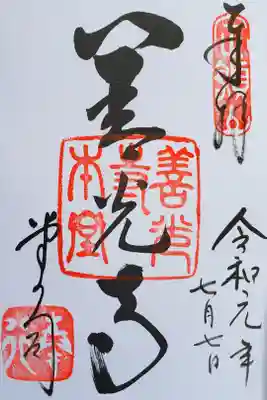 奉拝
善光寺
善光寺本堂
令和元年
七月七日